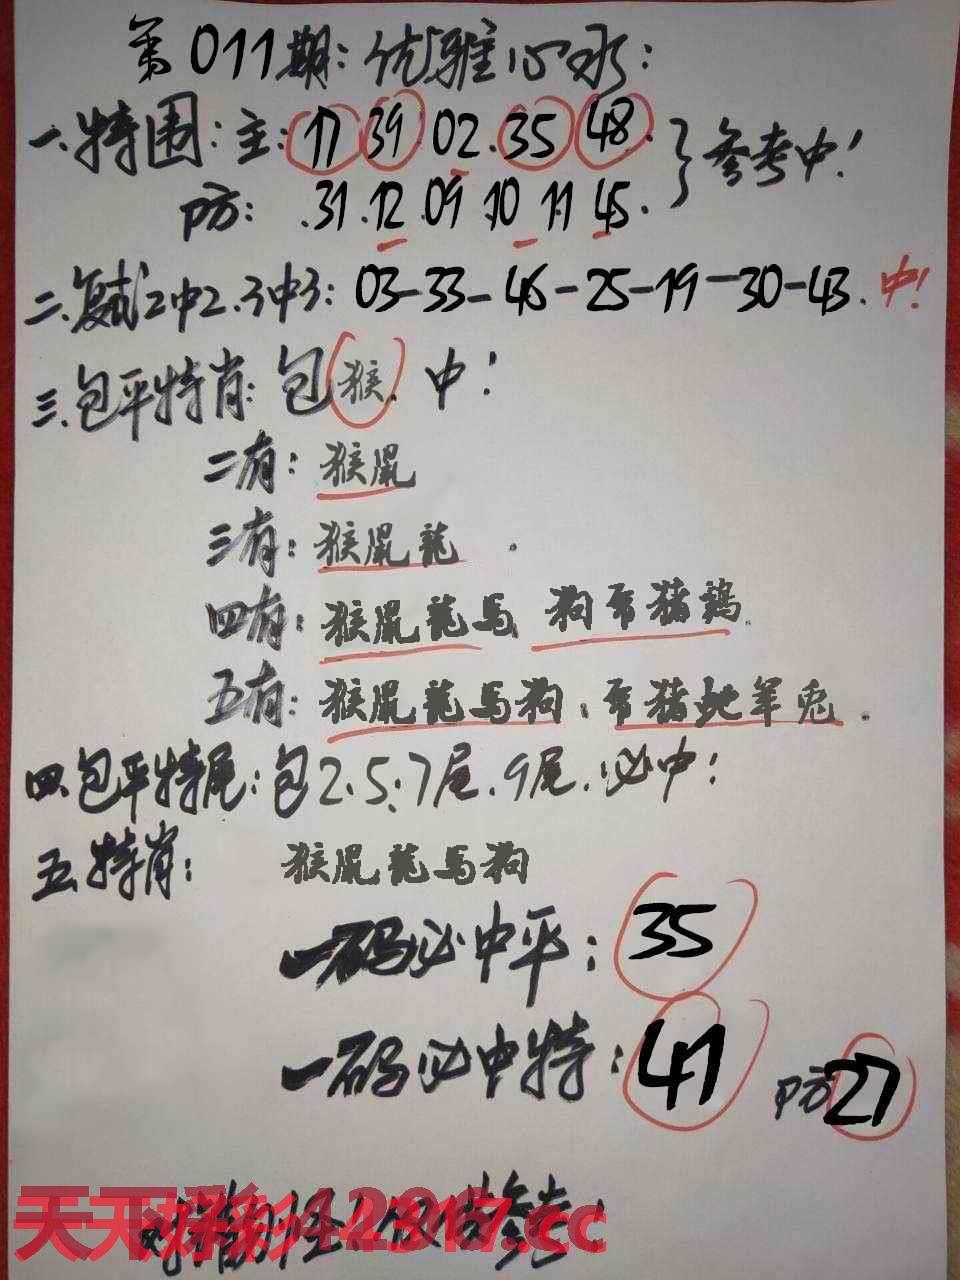 第011期:优雅心水:
一.特围:主:17 39 02.35 48.}参考中!
防: .31.12.09.10 11 45.
二.复试2中2.3中3:03-33-46-25-19-30-43.中!
三.包平特肖:包猴.中!
二有:猴鼠
三有:猴鼠龍.
四有:猴鼠龍馬 狗 猪鷄.
五有:猴鼠龍馬狗. 猪 羊兔.
四.包平特尾:包2.5:7尾.9尾.必中!
五.特肖: 猴鼠龍馬狗
一码必中平:35
一码必中特:41 防27
天下彩 .cc